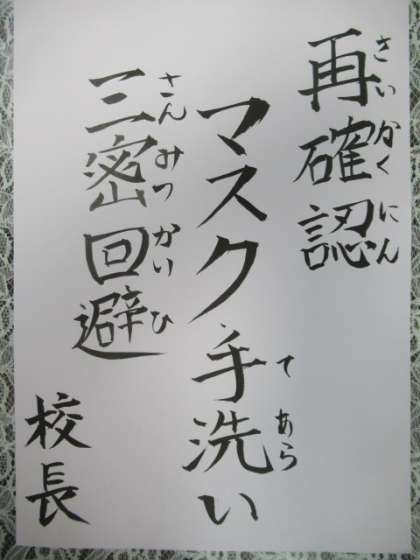 再確認
さいかくにん
マスク手洗い
てあら
三密回避
さんみつかいひ
校長